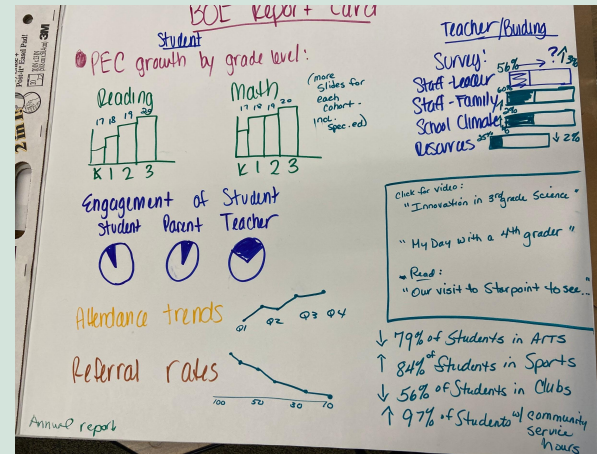 BOE Report Card
Student
PEC growth by grade level:
Reading
17 18 19 20
K 1 2 3
Math
17 18 19 20
K 1 2 3
(more
slides for
each
cohort.
incl.
spec. ed)
Engagement of Student
Student Parent Teacher
Attendance trends
Q1 Q2 Q3 Q4
Referral rates
100 50 30 10
Annual report
Teacher/Building
Survey:
56% ?↑
Staff-Leader
Staff-Family
60%
School Climate
Resources 25% ↓2%
Click for video:
"Innovation in 3rd grade Science"
"My Day with a 4th grader"
Read:
"Our visit to Starpoint to see..."
↓ 79% of Students in Arts
↑ 84% of Students in Sports
↓ 56% of Students in Clubs
↑ 97% of Students w/ community
service
hours
Post-it
3M
2 in 1